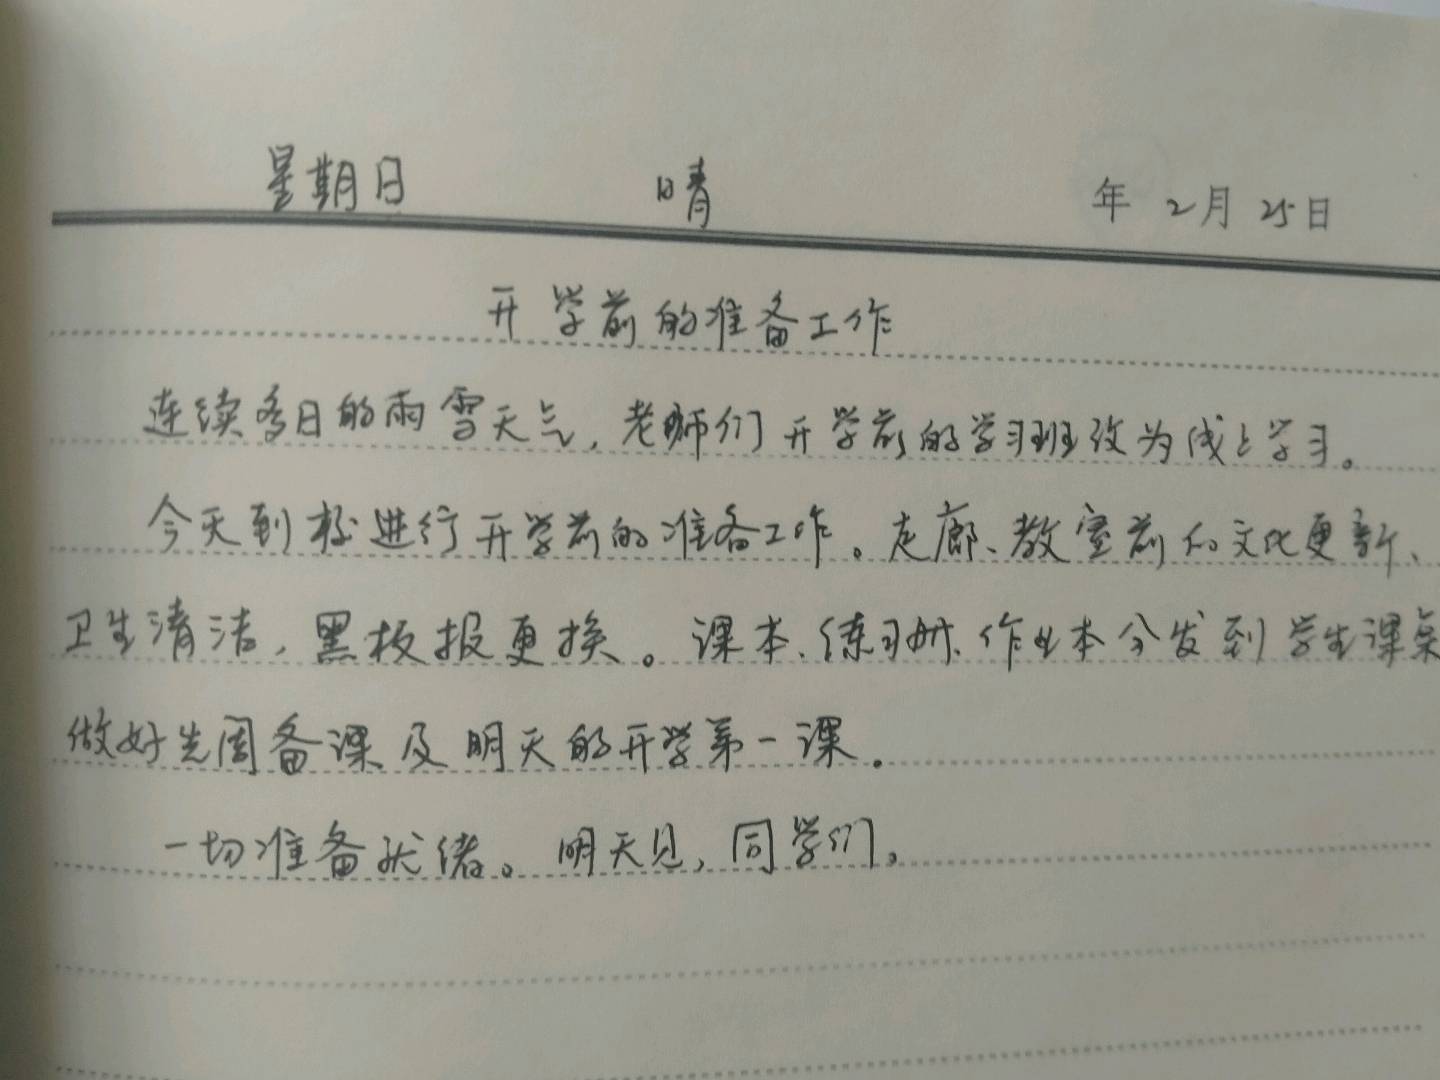 星期日 晴 年 2月 25日
开学前的准备工作
连续多日的雨雪天气,老师们开学前的学习班改为线上学习。
今天到校进行开学前的准备工作。走廊、教室前的文化更新、
卫生清洁,黑板报更换。课本、练习册、作业本分发到学生课桌
做好先周备课及明天的开学第一课。
一切准备就绪。明天见,同学们。